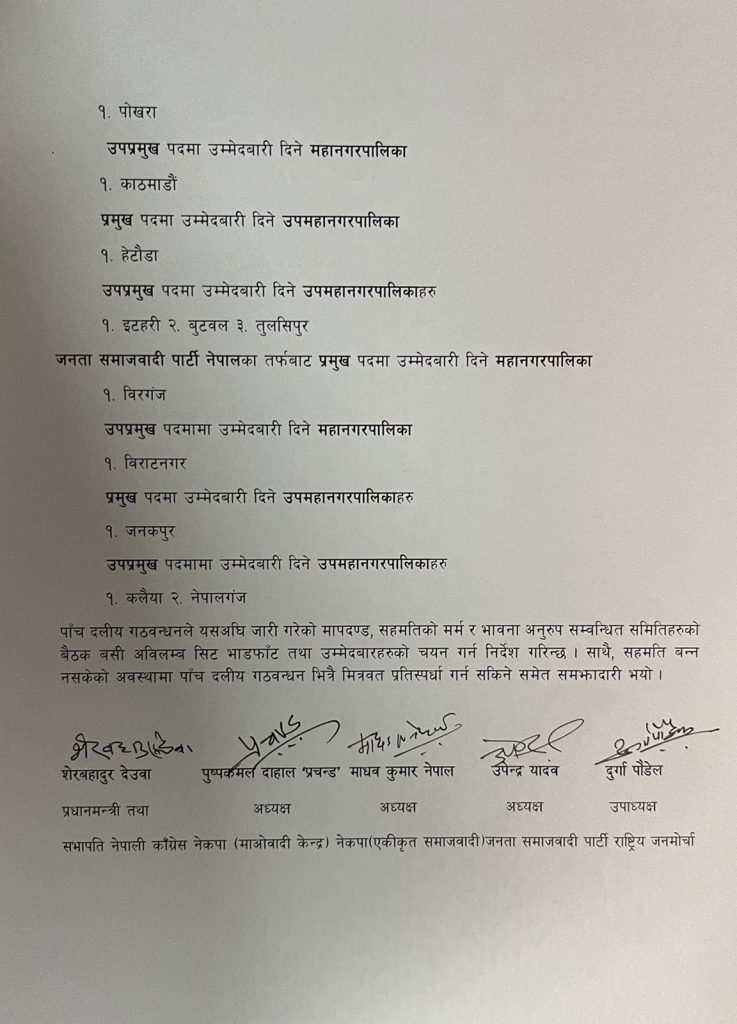 १. पोखरा
उपप्रमुख पदमा उम्मेदबारी दिने महानगरपालिका
१. काठमाडौं
प्रमुख पदमा उम्मेदबारी दिने उपमहानगरपालिका
१. हेटौडा
उपप्रमुख पदमा उम्मेदबारी दिने उपमहानगरपालिकाहरु
१. इटहरी २. बुटवल ३. तुलसिपुर
जनता समाजवादी पार्टी नेपालका तर्फबाट प्रमुख पदमा उम्मेदबारी दिने महानगरपालिका
१. विरगंज
उपप्रमुख पदमामा उम्मेदबारी दिने महानगरपालिका
१. विराटनगर
प्रमुख पदमा उम्मेदबारी दिने उपमहानगरपालिकाहरु
१. जनकपुर
उपप्रमुख पदमामा उम्मेदबारी दिने उपमहानगरपालिकाहरु
१. कलैया २. नेपालगंज
पाँच दलीय गठवन्धनले यसअघि जारी गरेको मापदण्ड, सहमतिको मर्म र भावना अनुरुप सम्वन्धित समितिहरुको
बैठक बसी अविलम्ब सिट भाडफाँट तथा उम्मेदबारहरुको चयन गर्न निर्देश गरिन्छ । साथै, सहमति बन्न
नसकेको अवस्थामा पाँच दलीय गठवन्धन भित्रै मित्रवत प्रतिस्पर्धा गर्न सकिने समेत समझादारी भयो ।
शेरबहादुर देउवा पुष्पकमल दाहाल ‘प्रचन्ड’ माधव कुमार नेपाल उपेन्द्र यादव दुर्गा पौडेल
प्रधानमन्त्री तथा अध्यक्ष अध्यक्ष अध्यक्ष उपाध्यक्ष
सभापति नेपाली काँग्रेस नेकपा (माओवादी केन्द्र) नेकपा(एकीकृत समाजवादी)जनता समाजवादी पार्टी राष्ट्रिय जनमोर्चा